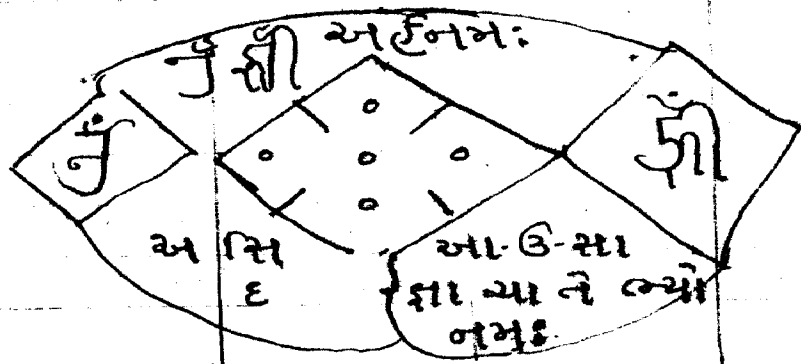 ૐ હ્રીઁ અર્હનમઃ
ૐ
હ્રીઁ
અ સિ આ-ઉ-સા
દ જ્ઞા ચા તે ભ્યો
નમઃ